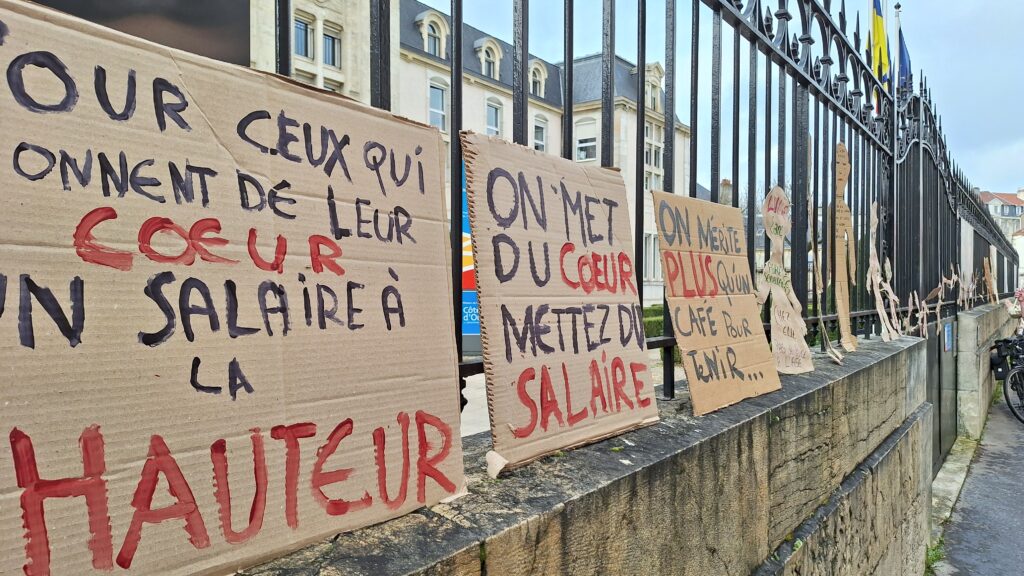 OUR
CEUX QUI
ONNENT DE LEUR
COEUR
UN SALAIRE À
LA
HAUTEUR
ON MET
DU COEUR
METTEZ DU
SALAIRE
ON MÉRITE
PLUS QU'UN
CAFÉ POUR
TENIR...
Côte
d'O